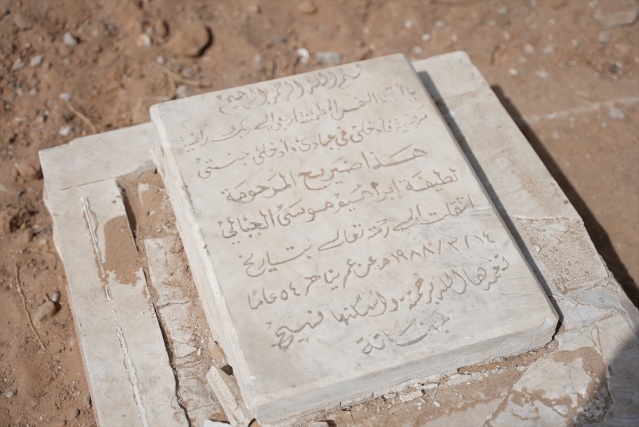 بسم الله الرحمن الرحيم
يا أيتها النفس المطمئنة ارجعي إلى ربك راضية
مرضية فادخلي في عبادي وادخلي جنتي
هذا ضريح المرحومة
لطيفة ابراهيم موسى الجبالي
انتقلت إلى رحمة الله تعالى بتاريخ
١٩٨٨/٣/١٤م عن عمر يناهز ٥٤ عاما
تغمدها الله برحمته واسكنها فسيح
جناته